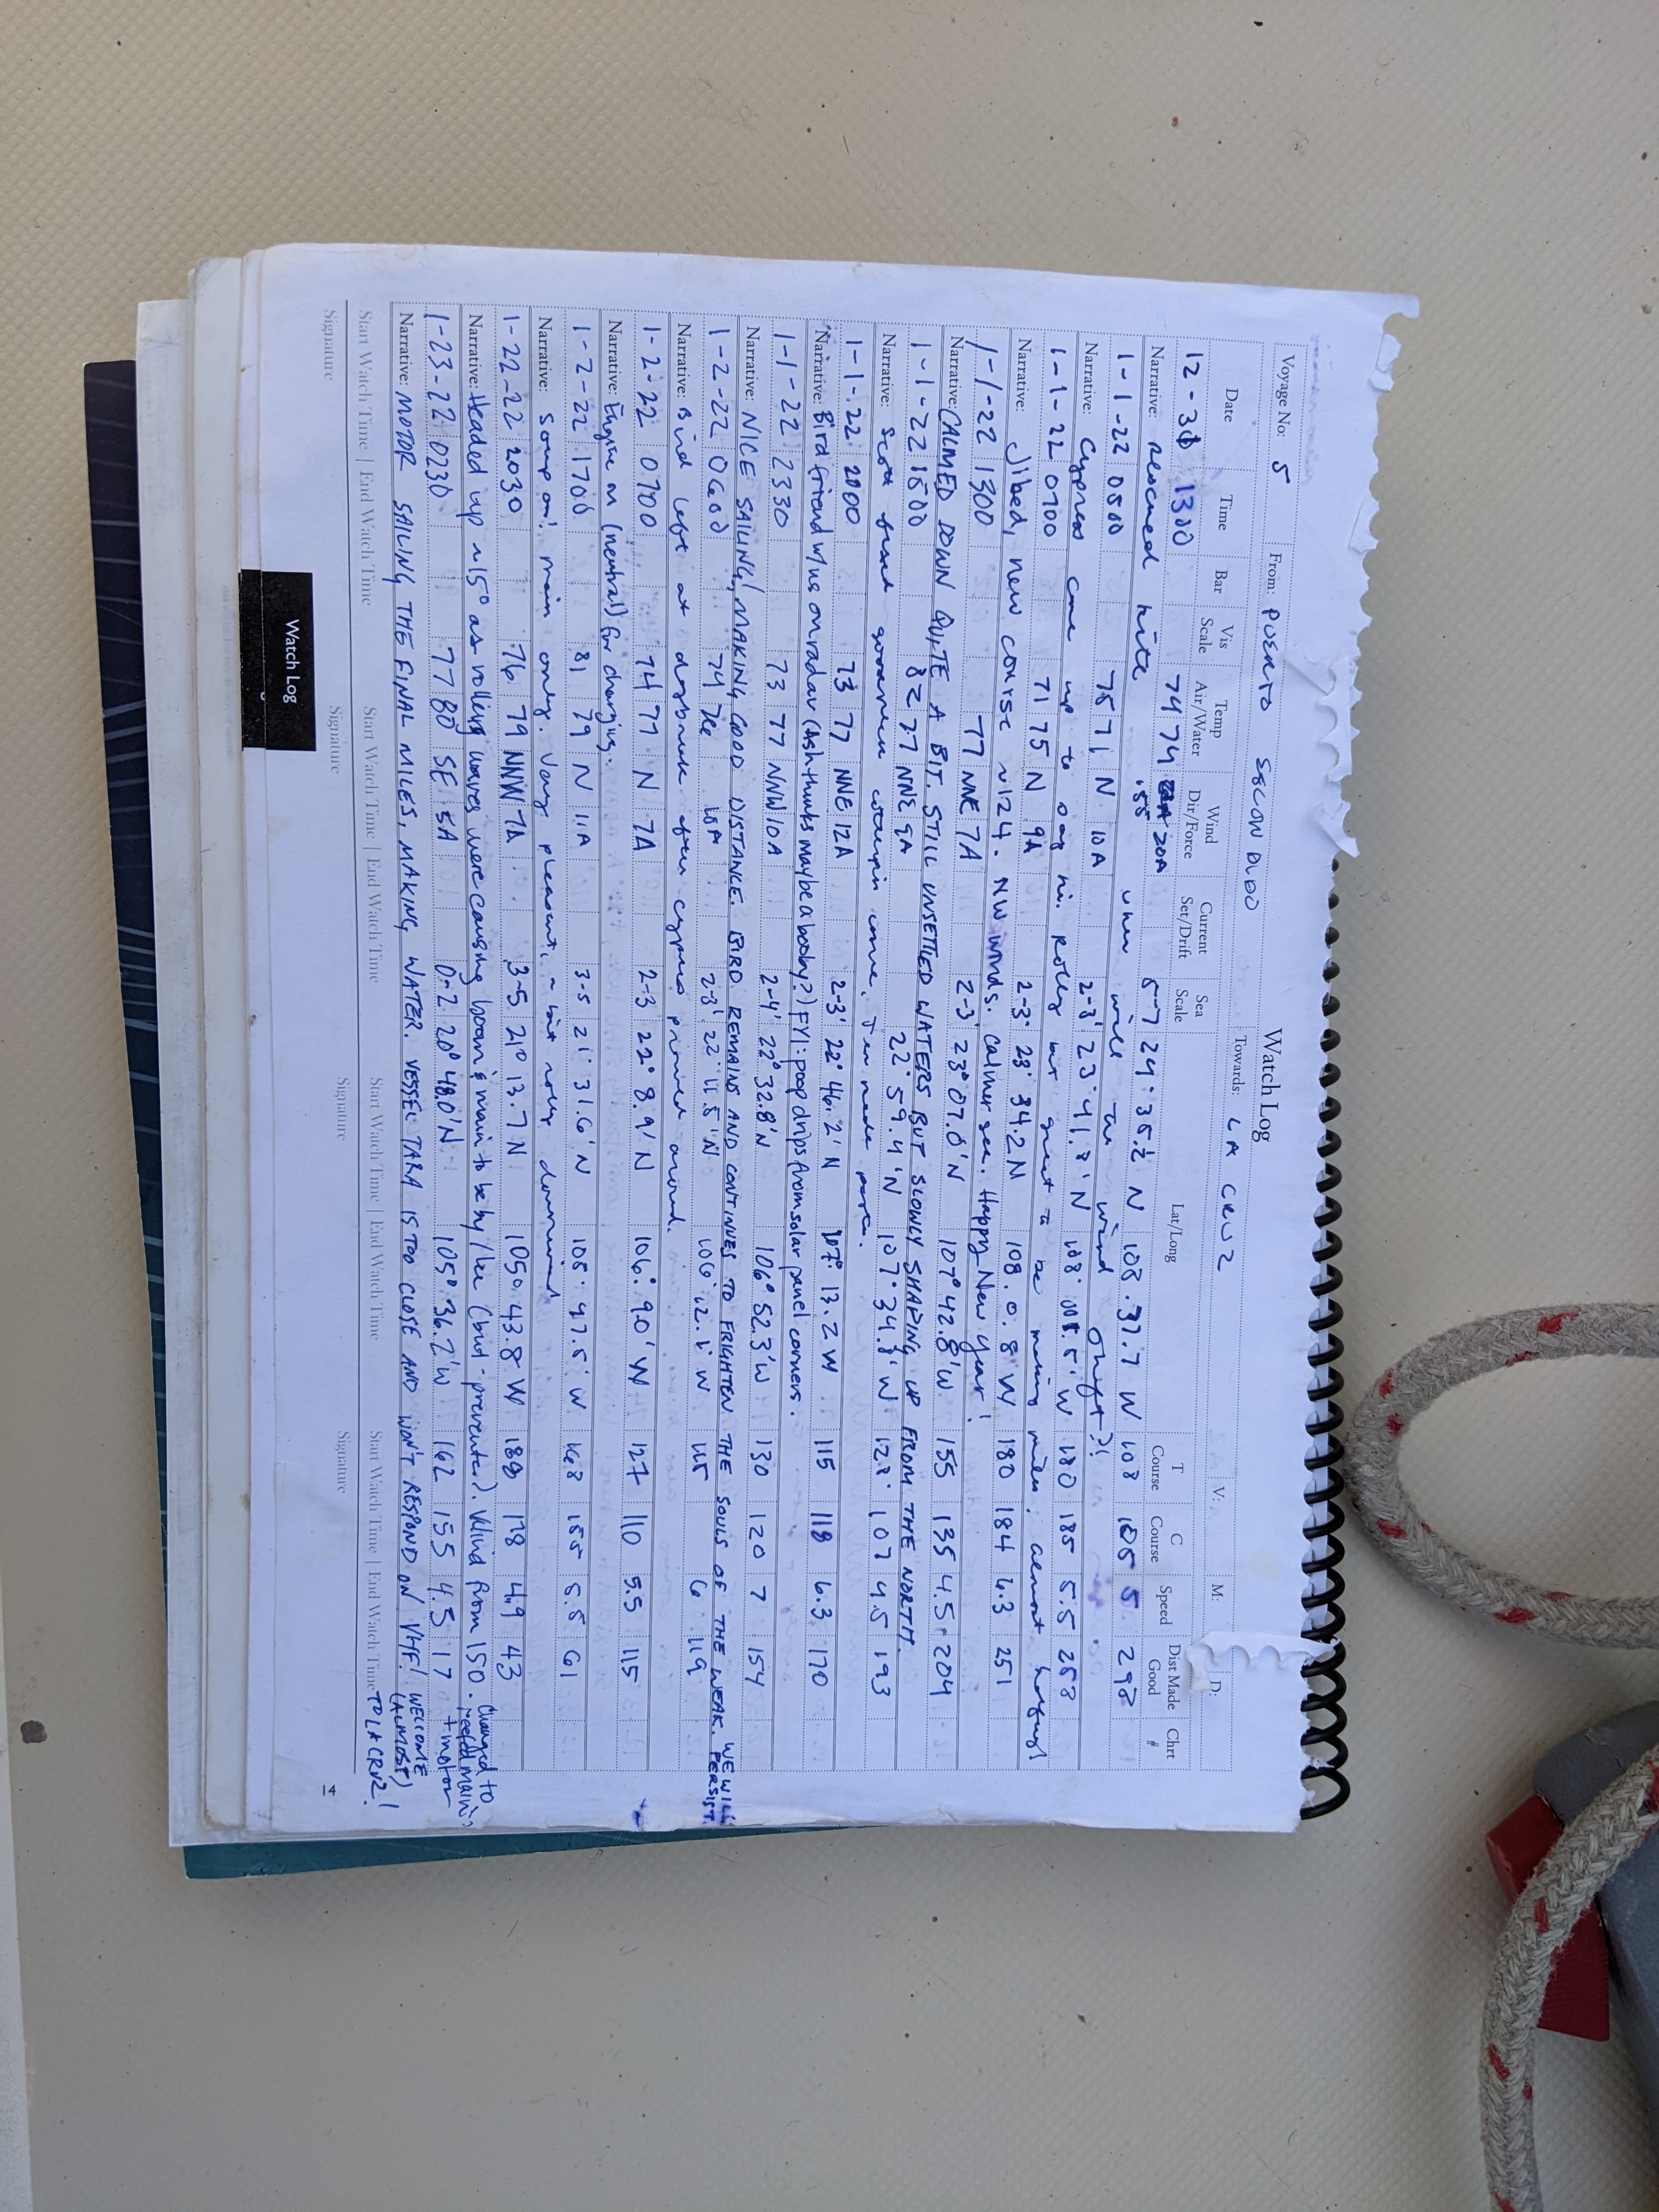 Watch Log
Voyage No: 5 From: PUERTO ESCONDIDO Towards: LA CRUZ V: M: D:
Date Time Bar Vis Scale Temp Air/Water Wind Dir/Force Current Set/Drift Sea Scale Lat/Long T Course C Course Speed Dist Made Good Chrt #
12-30 1300 74 74 20A 5-7 24° 35.2 N 108.37.7 W 108 105 5 298
Narrative: rescued kite when wind
1-1-22 0500 75 71 N 10A 2-3' 23° 41.8' N 108° W 180 185 5.5 258
Narrative: Cypress came up to say hi. Rolly but great to be making miles; almost halfway!
1-1-22 0700 71 75 N 9A 2-3' 23° 34.2 N 108.0.8 W 180 184 6.3 251
Narrative: Jibed, new course ~124. NW winds. Calmer sea. Happy New Year!
1-1-22 1300 77 NNE 7A 2-3' 23° 07.0' N 107° 42.8' W 155 135 4.5 204
Narrative: CALMED DOWN QUITE A BIT. STILL UNSETTLED WATERS BUT SLOWLY SHAPING UP FROM THE NORTH.
1-1-22 1500 82 77 NNE 9A 22° 59.4' N 107° 34.8' W 107 4.5 193
Narrative: Scott
1-1-22 2000 73 77 NNE 12A 2-3' 22° 46.2' N 107° 13.2 W 115 118 6.3 170
Narrative: Bird friend w/us on radar (Ash thinks maybe a booby?) FYI: poop drips from solar panel corners.
1-1-22 2330 73 77 NNW 10A 2-4' 22° 32.8' N 106° 52.3' W 130 120 7 154
Narrative: NICE SAILING! MAKING GOOD DISTANCE. BIRD REMAINS AND CONTINUES TO FRIGHTEN THE SOULS OF THE WEAK. WE WILL PERSIST.
1-2-22 0600 74 76 10A 2-3' 22° 11.5' N 106° 12.1' W 115 6 119
Narrative: Bird left at daybreak after cypress prowled around.
1-2-22 0700 74 77 N 7A 2-3 22° 8.9' N 106° 9.0' W 127 110 5.5 115
Narrative: Engine on (neutral) for charging.
1-2-22 1700 81 79 N 11A 3-5 21° 31.6' N 105° 47.5' W 168 155 5.5 61
Narrative: Soup on! main only. Very pleasant, a bit rolly downwind
1-22-22 2030 76 79 NNW 7A 3-5 21° 13.7 N 105° 43.8 W 188 178 4.9 43
Narrative: Headed up ~15° as rolling waves were causing boom & main to be by/lee (but - preventer). Wind from 150. Changed to reefed main
1-23-22 0230 77 80 SE 5A 0-2 20° 48.0' N 105° 36.2' W 162 155 4.5 17 + motor
Narrative: MOTOR SAILING THE FINAL MILES, MAKING WATER. VESSEL TARA IS TOO CLOSE AND WON'T RESPOND ON VHF! WELCOME (ALMOST) TO LA CRUZ!
Start Watch Time | End Watch Time Start Watch Time | End Watch Time Start Watch Time | End Watch Time Start Watch Time | End Watch Time
Signature Signature Signature Signature
14
Watch Log